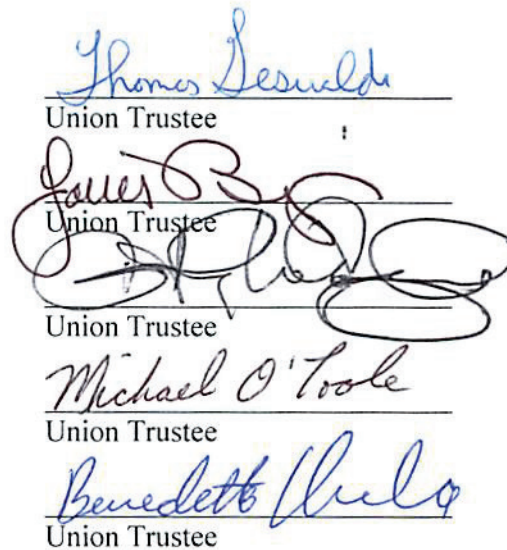 Thomas Gesualdi
Union Trustee
Louis
Union Trustee
Union Trustee
Michael O'Toole
Union Trustee
Benedetto
Union Trustee